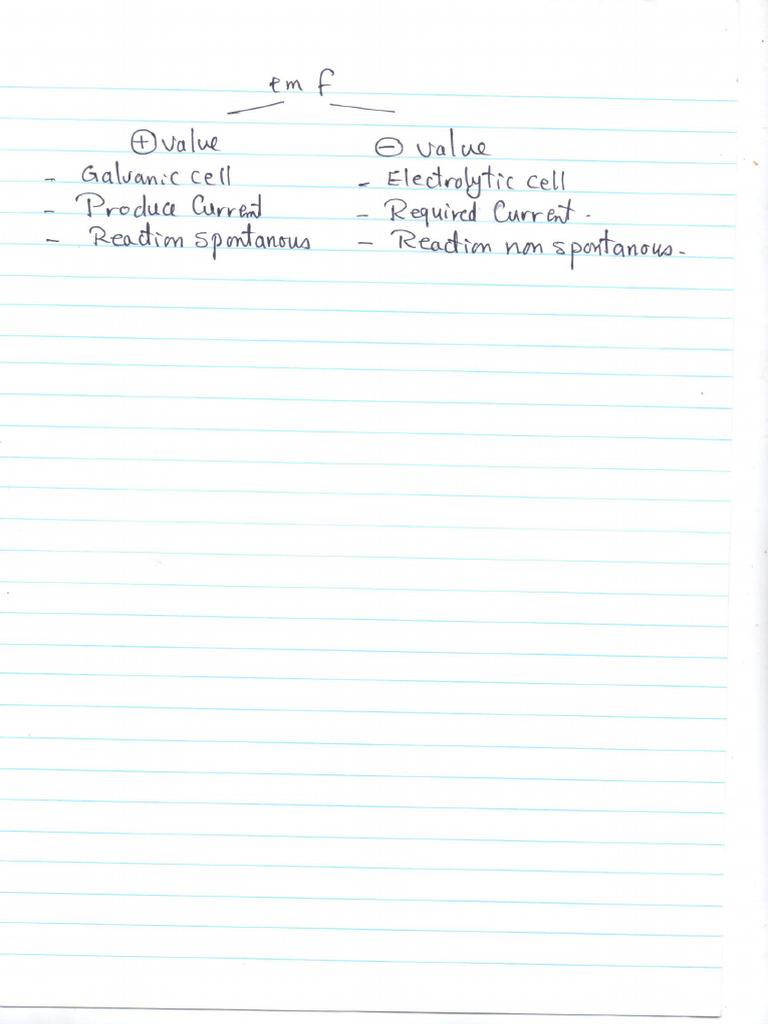 emf
⊕ value ⊖ value
- Galvanic cell - Electrolytic cell
- Produce Current - Required Current.
- Reaction spontanous - Reaction non spontanous.